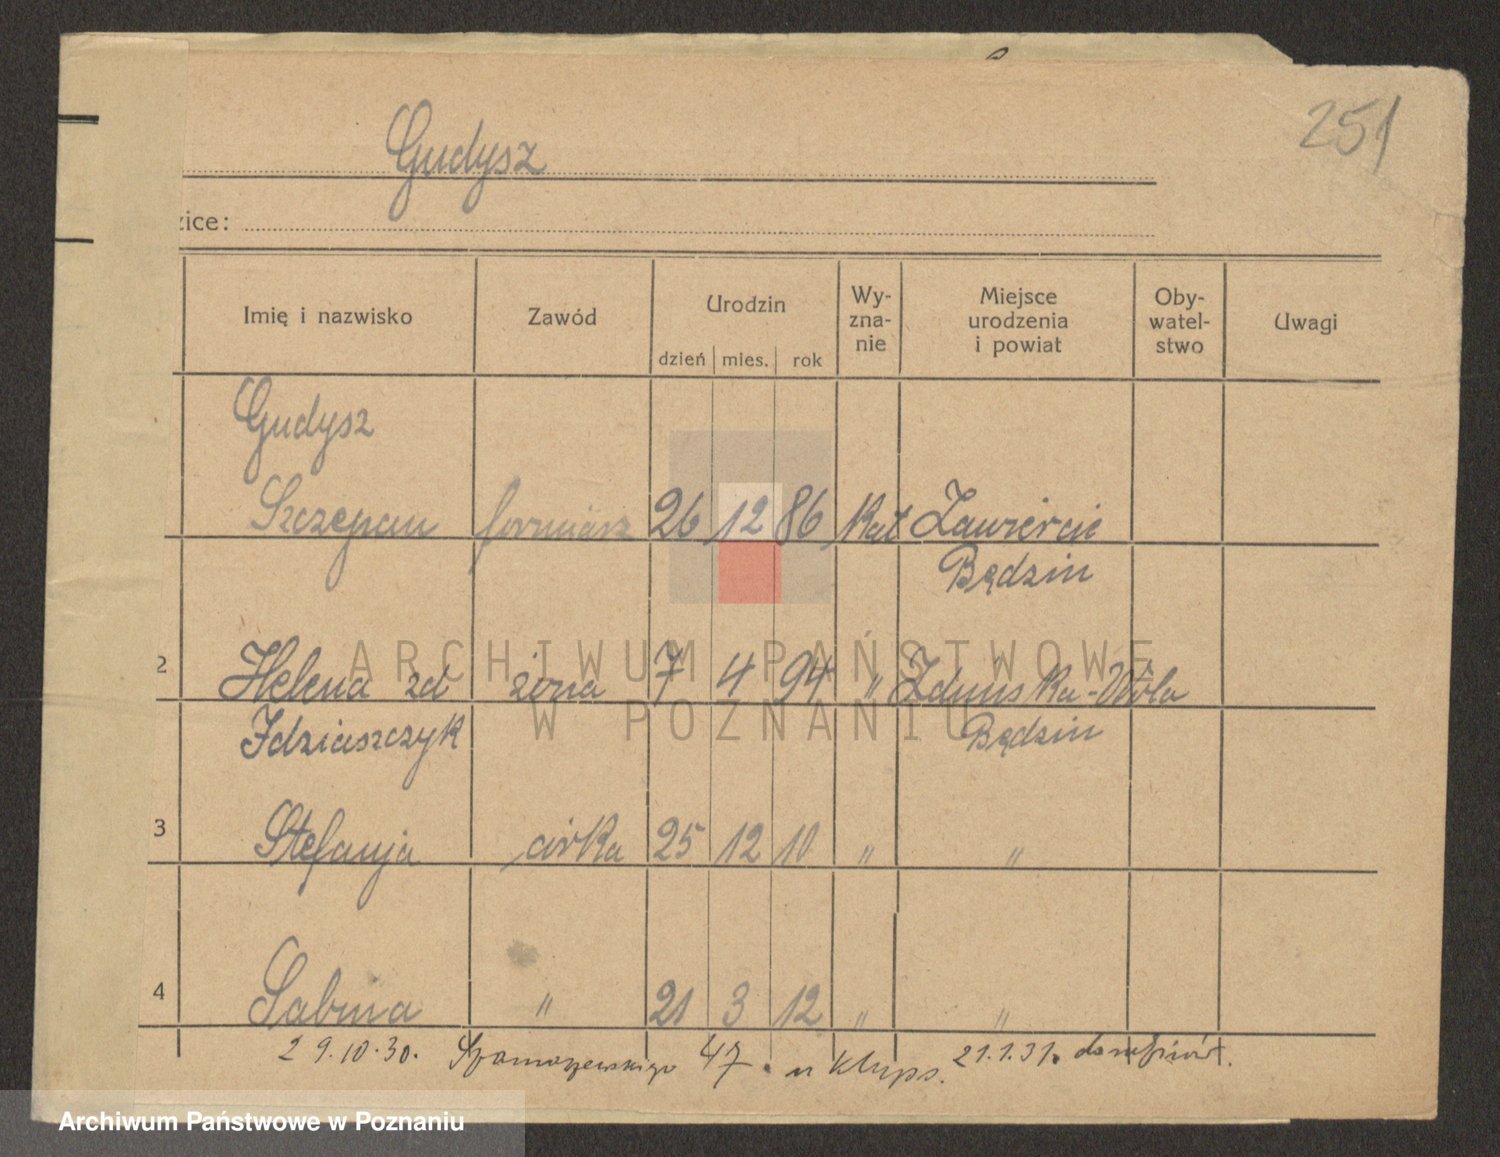 251
Gudysz
zice:
Imię i nazwisko Zawód Urodzin dzień mies. rok Wy-zna-nie Miejsce urodzenia i powiat Oby-watel-stwo Uwagi
Gudysz
Szczepan formiarz 26 12 86 Kat Zawiercie
Będzin
2 Helena zd żona 7 4 94 " Zduńska-Wola
Idziaszczyk Będzin
3 Stefanja córka 25 12 10 " "
4 Sabina " 21 3 12 " "
29.10.30. Szamarzewskiego 47. u Klups. 21.1.31.
ARCHIWUM PAŃSTWOWE
W POZNANIU
Archiwum Państwowe w Poznaniu